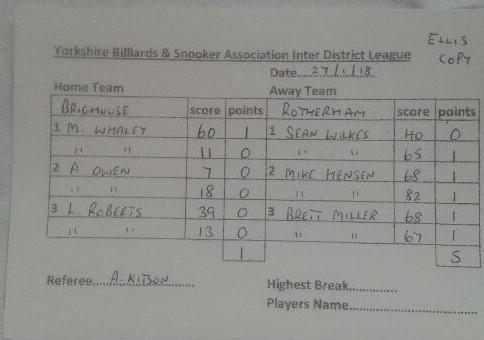 ELLIS
COPY
Yorkshire Billiards & Snooker Association Inter District League
Date....27/1/18
Home Team Away Team
BRIGHOUSE score points ROTHERHAM score points
1 M. WHALEY 60 1 1 SEAN WILKES 40 0
" " 11 0 " " 65 1
2 A OWEN 7 0 2 MIKE HENSEN 68 1
" " 18 0 " " 82 1
3 L. ROBERTS 39 0 3 BRETT MILLER 68 1
" " 13 0 " " 67 1
1 5
Referee....A. KITSON........ Highest Break..............
Players Name................................